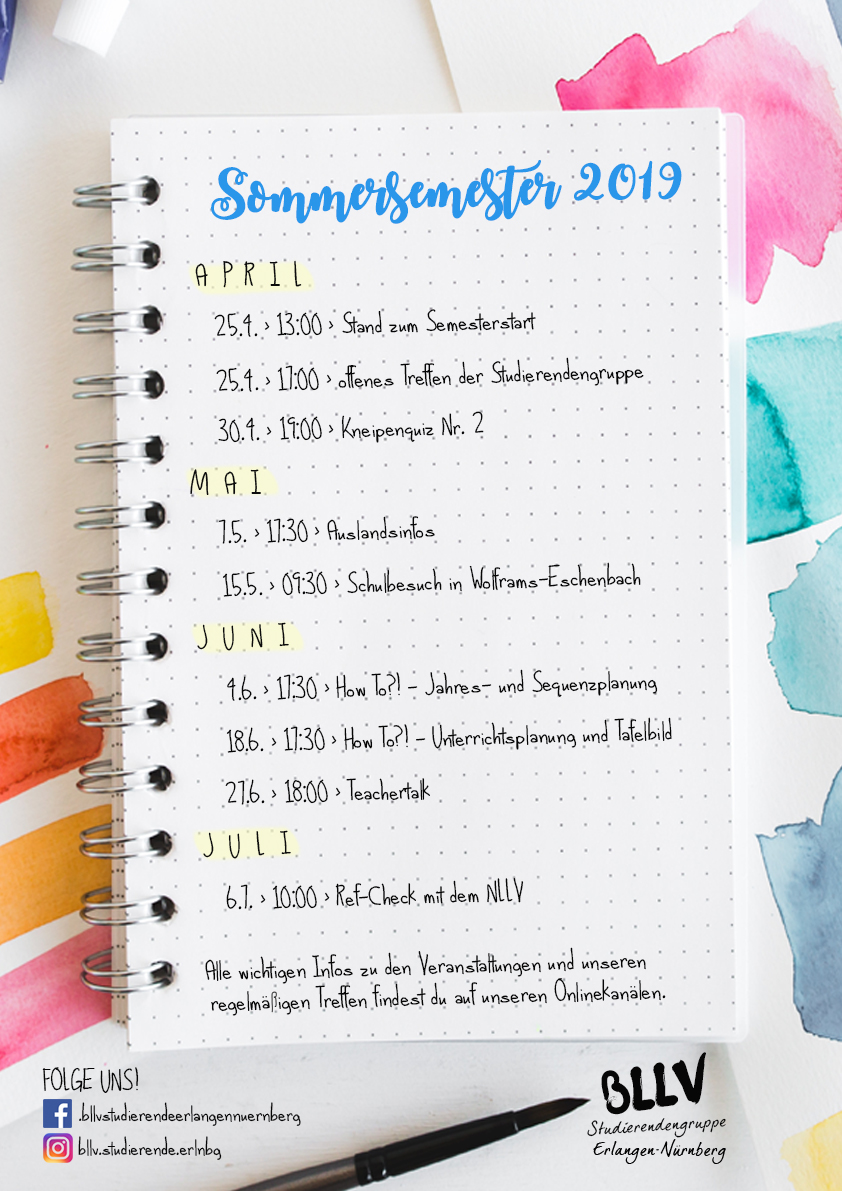 Sommersemester 2019
APRIL
25.4. > 13:00 > Stand zum Semesterstart
25.4. > 17:00 > offenes Treffen der Studierendengruppe
30.4. > 19:00 > Kneipenquiz Nr. 2
MAI
7.5. > 17:30 > Auslandsinfos
15.5. > 09:30 > Schulbesuch in Wolframs-Eschenbach
JUNI
4.6. > 17:30 > How To?! - Jahres- und Sequenzplanung
18.6. > 17:30 > How To?! - Unterrichtsplanung und Tafelbild
27.6. > 18:00 > Teachertalk
JULI
6.7. > 10:00 > Ref-Check mit dem NLLV
Alle wichtigen Infos zu den Veranstaltungen und unseren
regelmäßigen Treffen findest du auf unseren Onlinekanälen.
FOLGE UNS!
.bllvstudierendeerlangennuernberg
bllv.studierende.erlnbg
BLLV
Studierendengruppe
Erlangen-Nürnberg